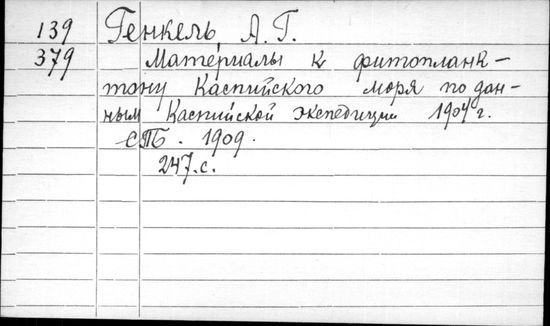 139 Генкель А. Г.
379 Материалы к фитопланк-
тону Каспийского моря по дан-
ным Каспийской экспедиции 1904 г.
СПБ. 1909.
247.с.